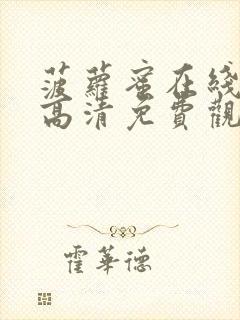 菠蘿蜜在綫
高清免費觀
霍華德